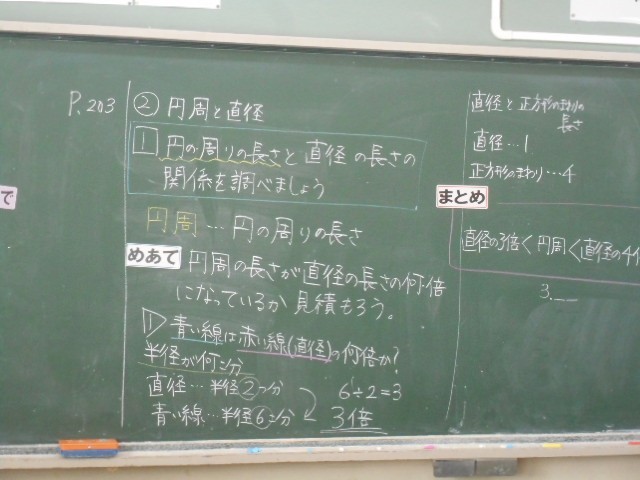 で
P.203
② 円周と直径
1 円の周りの長さと直径の長さの
関係を調べましょう
円周…円の周りの長さ
めあて 円周の長さが直径の長さの何倍
になっているか見積もろう。
1 青い線は赤い線(直径)の何倍か?
半径が何こ分
直径…半径②つ分
青い線…半径⑥こ分
6÷2=3
3倍
直径と正方形のまわりの
長さ
直径…1
正方形のまわり…4
まとめ
直径の3倍<円周<直径の4倍
3.__